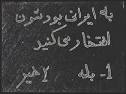 به ایرانی بودنتون
افتخار می‌کنید
1- بله ۲ خیر